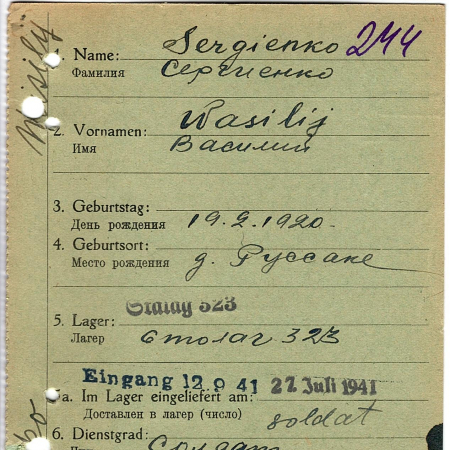 Wasilij
1. Name: Sergienko 244
Фамилия Сергиенко
2. Vornamen: Wasilij
Имя Василий
3. Geburtstag:
День рождения 19.2.1920.
4. Geburtsort:
Место рождения д. Руссаке
Stalag 323
5. Lager:
Лагерь столаг 323
Eingang 12 9 41 27 Juli 1941
5a. Im Lager eingeliefert am:
Доставлен в лагерь (число) soldat
6. Dienstgrad:
Солдат